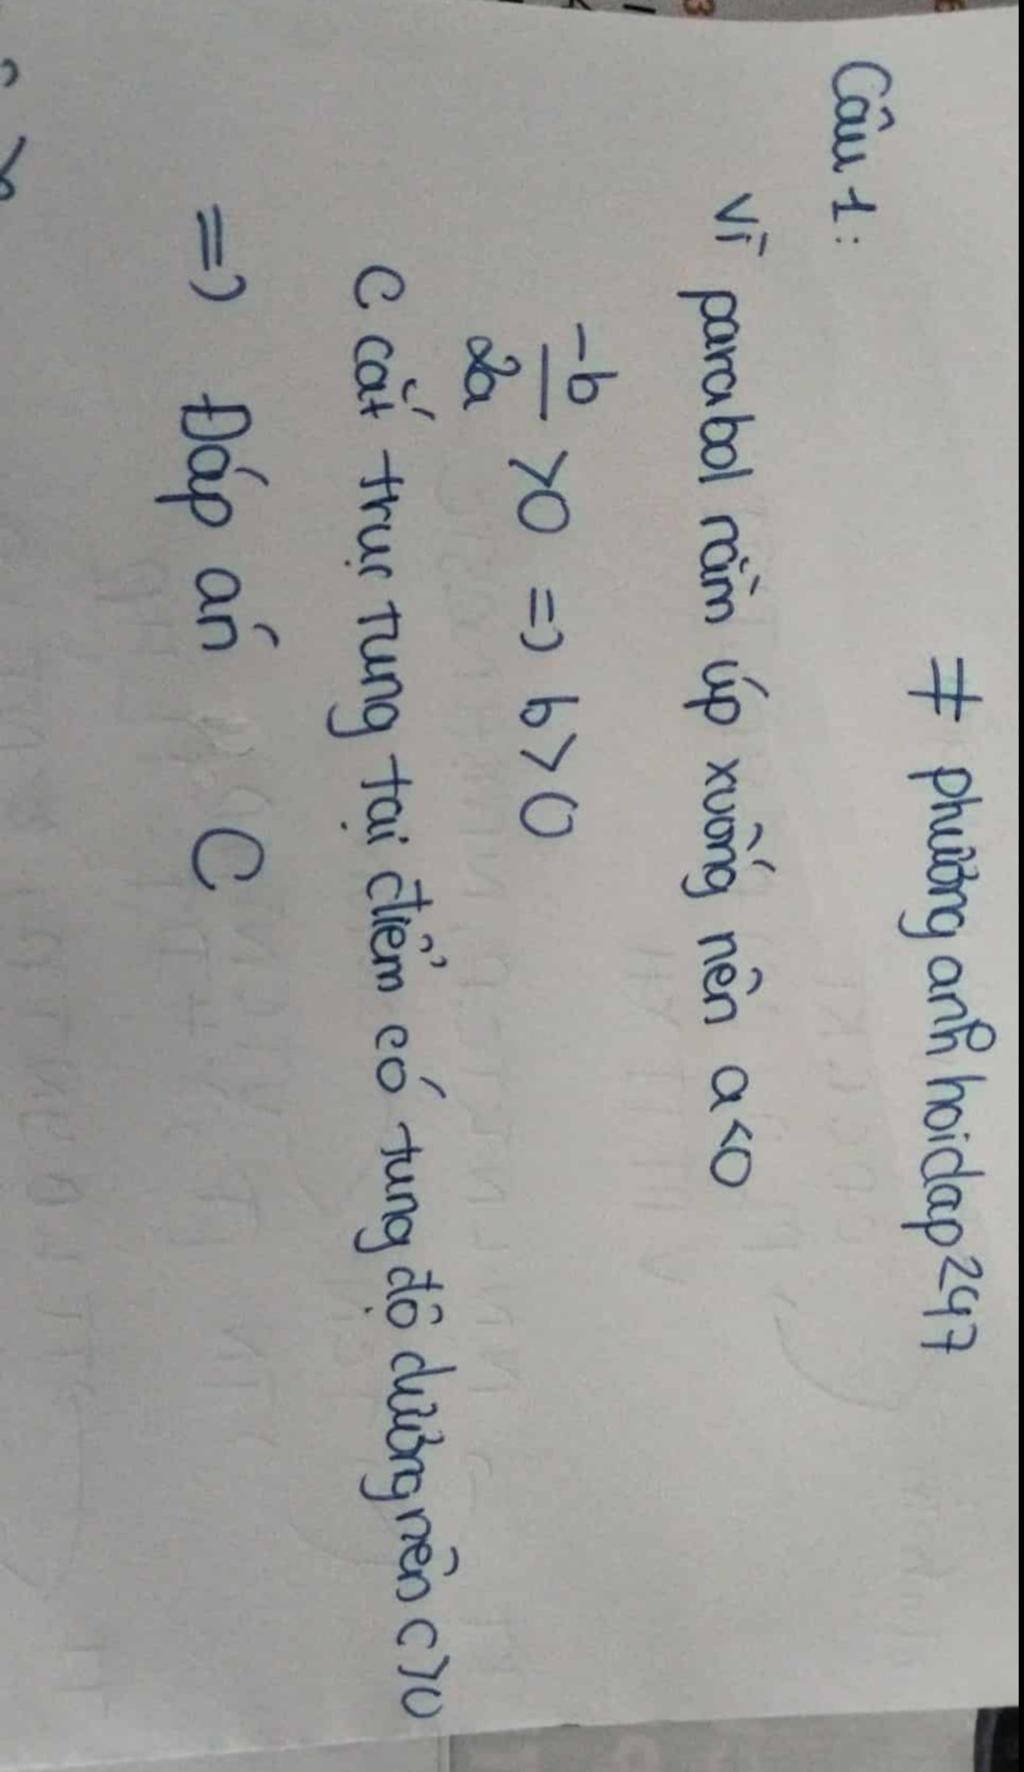 # phương anh hoidap247
Câu 1:
Vì parabol nằm úp xuống nên a<0
-b
2a
>0 => b>0
C cắt trục tung tại điểm có tung độ dương nên c>0
=> Đáp án C